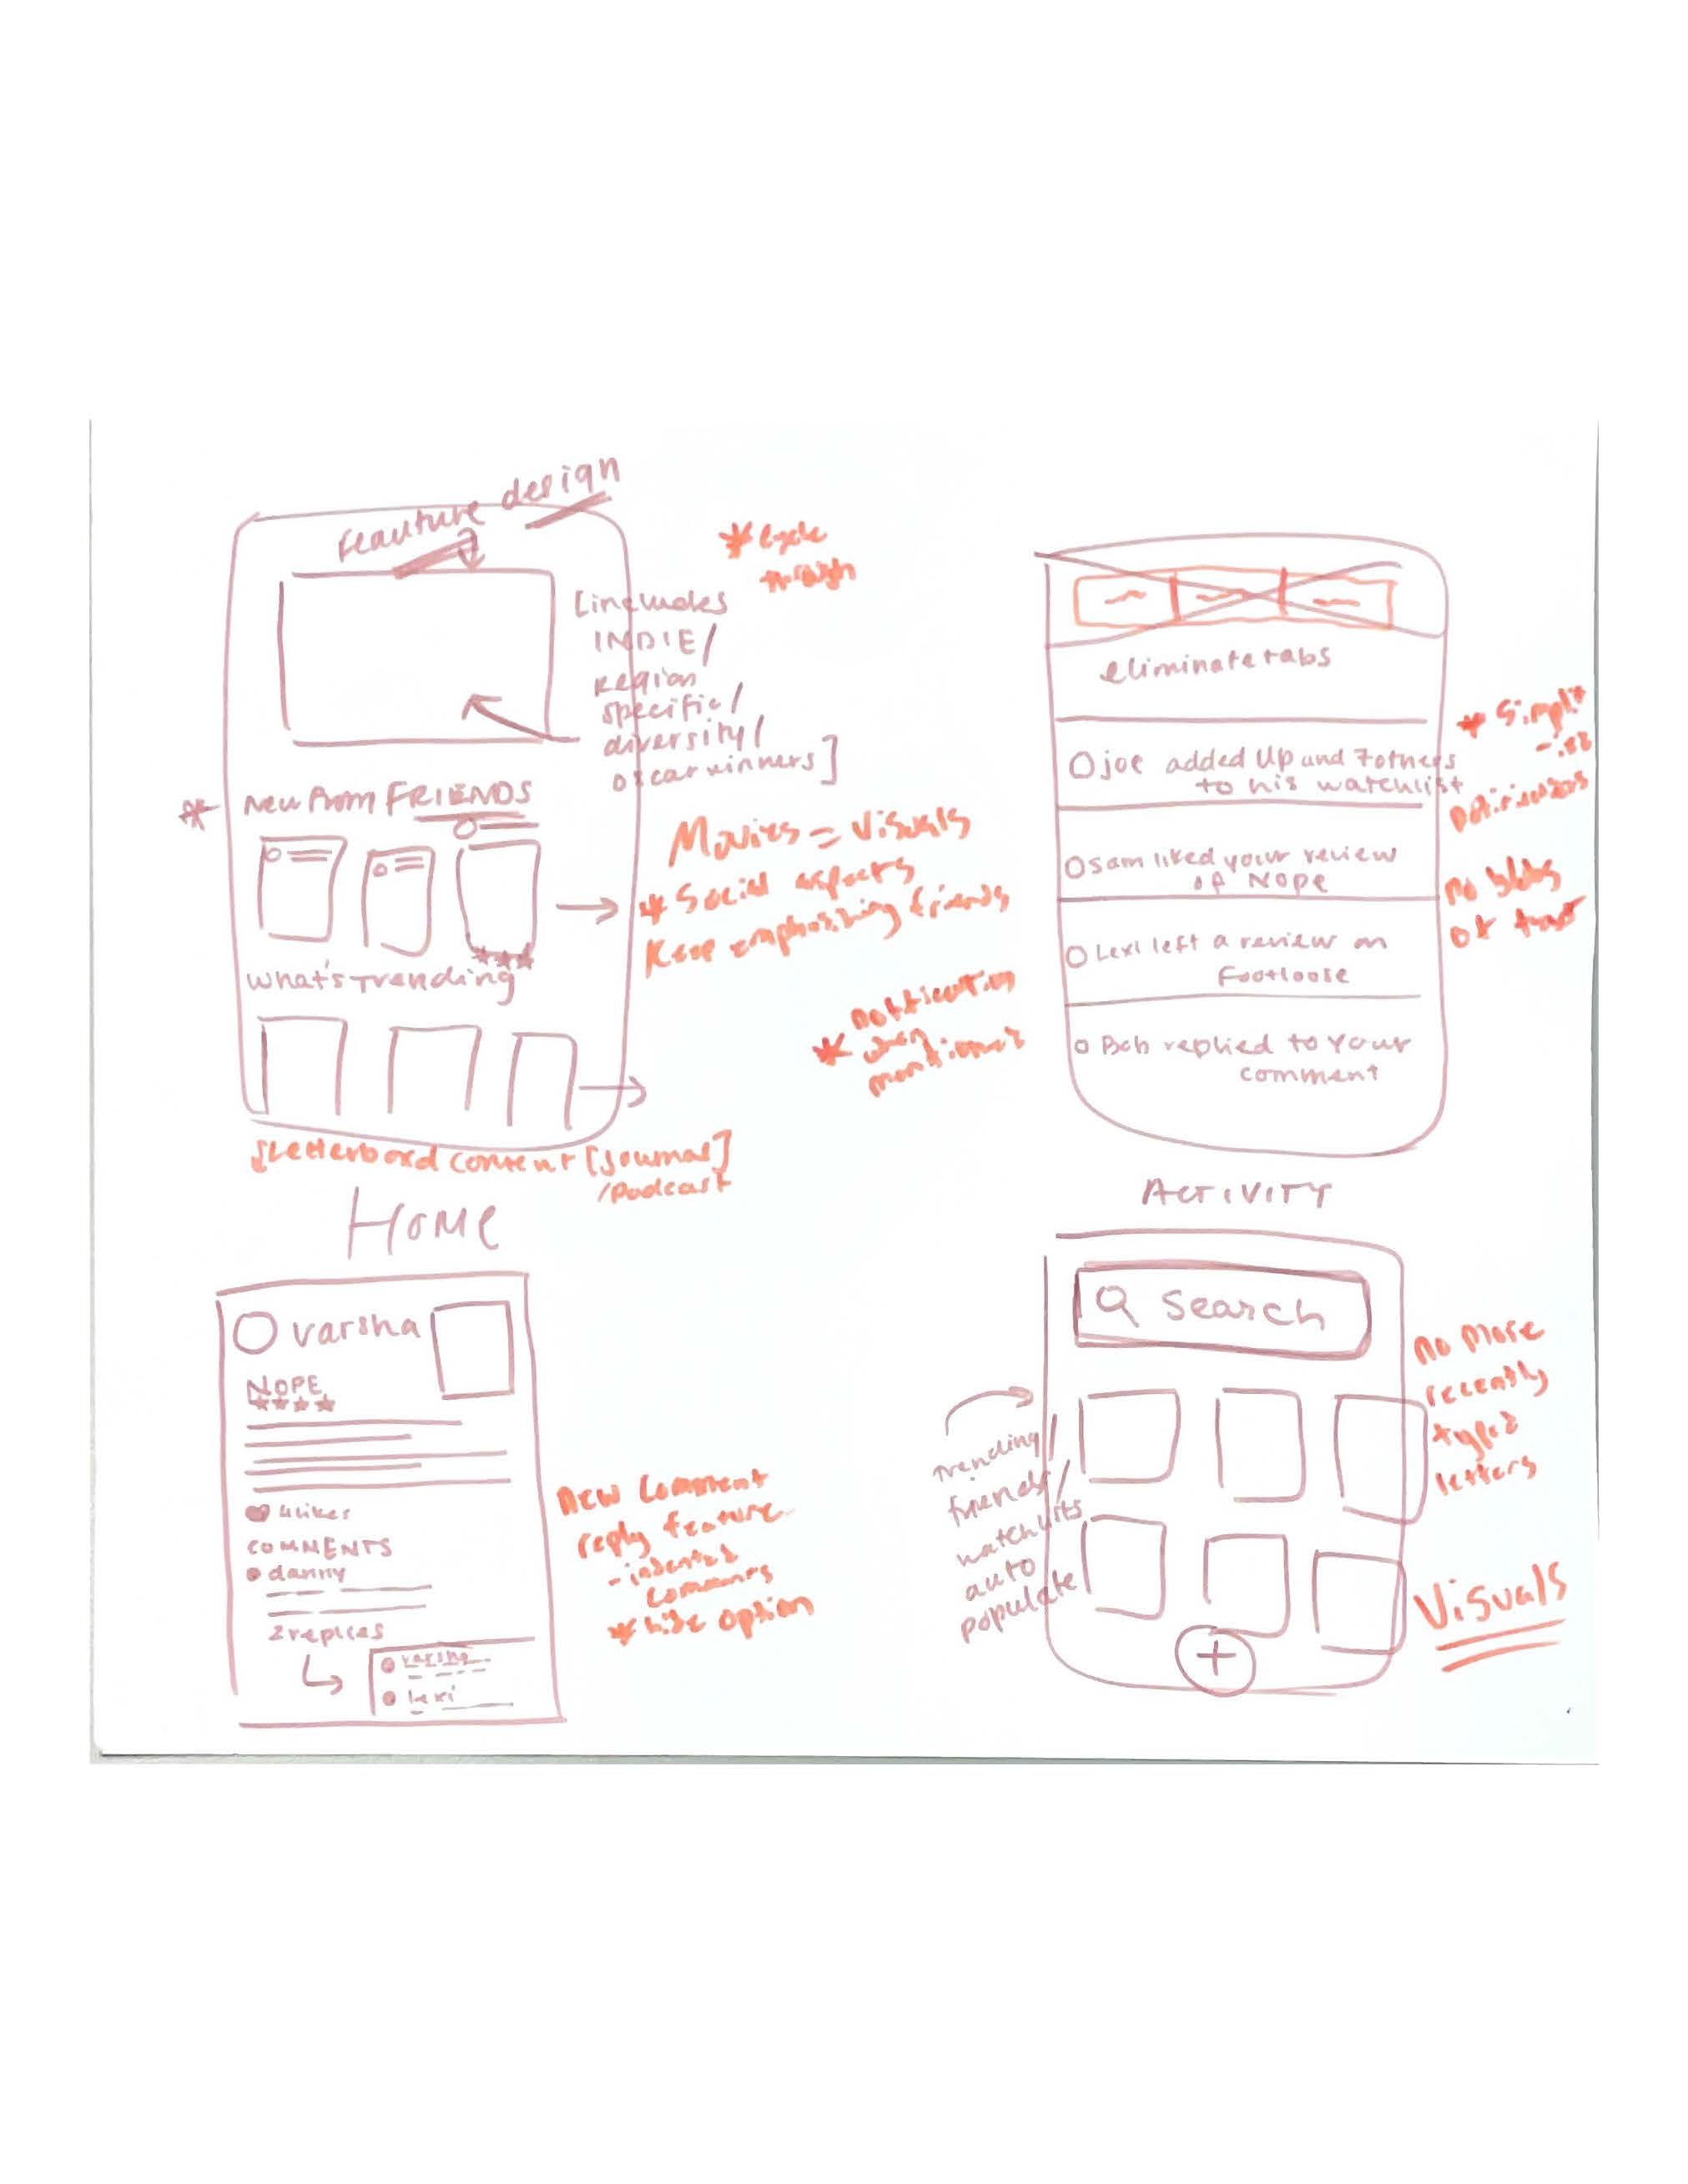 feauture design
* cycle
through
[includes
INDIE/
region
specific/
diversity/
oscar winners]
* New from FRIENDS
Movies = visuals
* Social aspects
Keep emphasizing friends
What's Trending
* notification
when
mentioned
Letterboxd content [journal]
/Podcast
HOME
eliminate tabs
Joe added Up and 7 others
to his watchlist
Sam liked your review
of Nope
Lexi left a review on
Footloose
Bob replied to your
comment
* Simplif
no blobs
of text
ACTIVITY
varsha
NOPE
4 likes
COMMENTS
danny
2 replies
varsha
lexi
New Comment
reply feature
- indented
comments
* hide option
Search
trending/
friends/
watchlists
auto
populate
+
no more
recently
typed
letters
Visuals